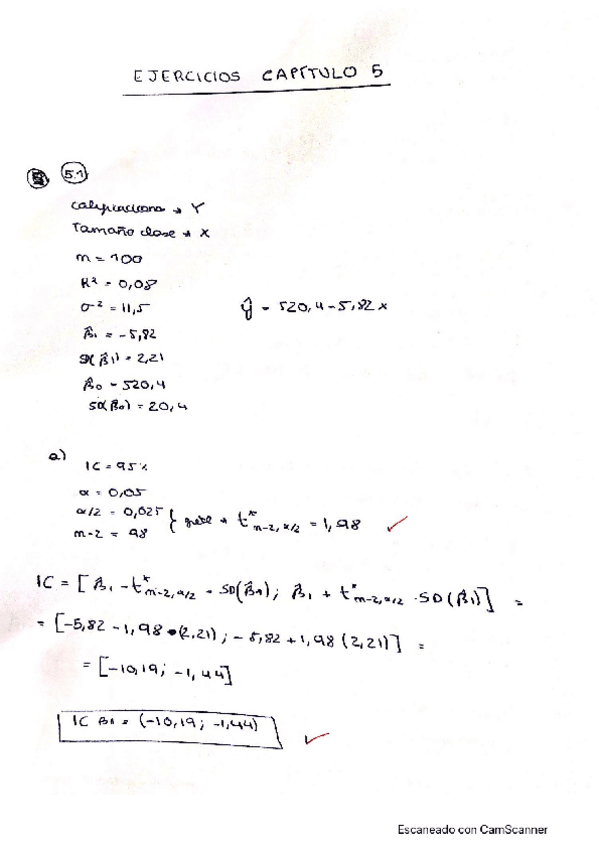 EJERCICIOS CAPÍTULO 5
5.1
calificaciones → Y
Tamaño clase → X
n = 100
R² = 0,08
σ² = 11,5
ŷ = 520,4 - 5,82 x
β̂₁ = -5,82
SD(β̂₁) = 2,21
β̂₀ = 520,4
SD(β̂₀) = 20,4
a)
IC = 95%
α = 0,05
α/2 = 0,025
n-2 = 98
} gretl → t*n-2, α/2 = 1,98
IC = [β̂₁ - t*n-2, α/2 · SD(β̂₁); β̂₁ + t*n-2, α/2 · SD(β̂₁)] =
= [-5,82 - 1,98 • (2,21); -5,82 + 1,98 (2,21)] =
= [-10,19; -1,44]
IC β1 = (-10,19; -1,44)
Escaneado con CamScanner